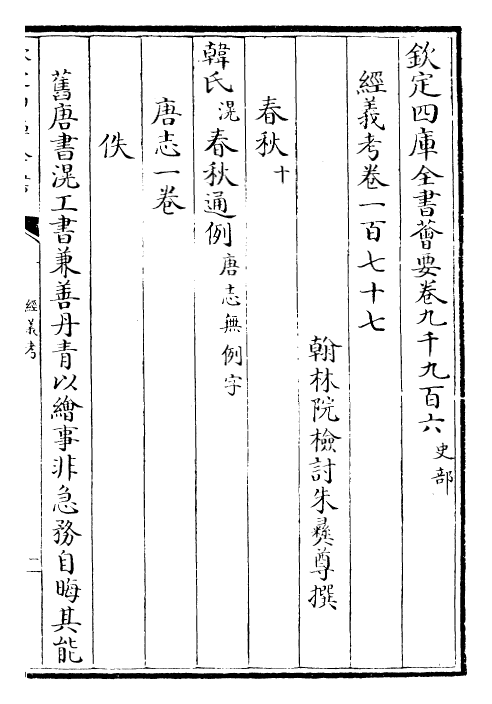 欽定四庫全書薈要卷九千九百六 史部
經義考卷一百七十七
翰林院檢討朱彝尊撰
春秋十
韓氏滉春秋通例唐志無例字
唐志一卷
佚
舊唐書滉工書兼善丹青以繪事非急務自晦其能
經義考